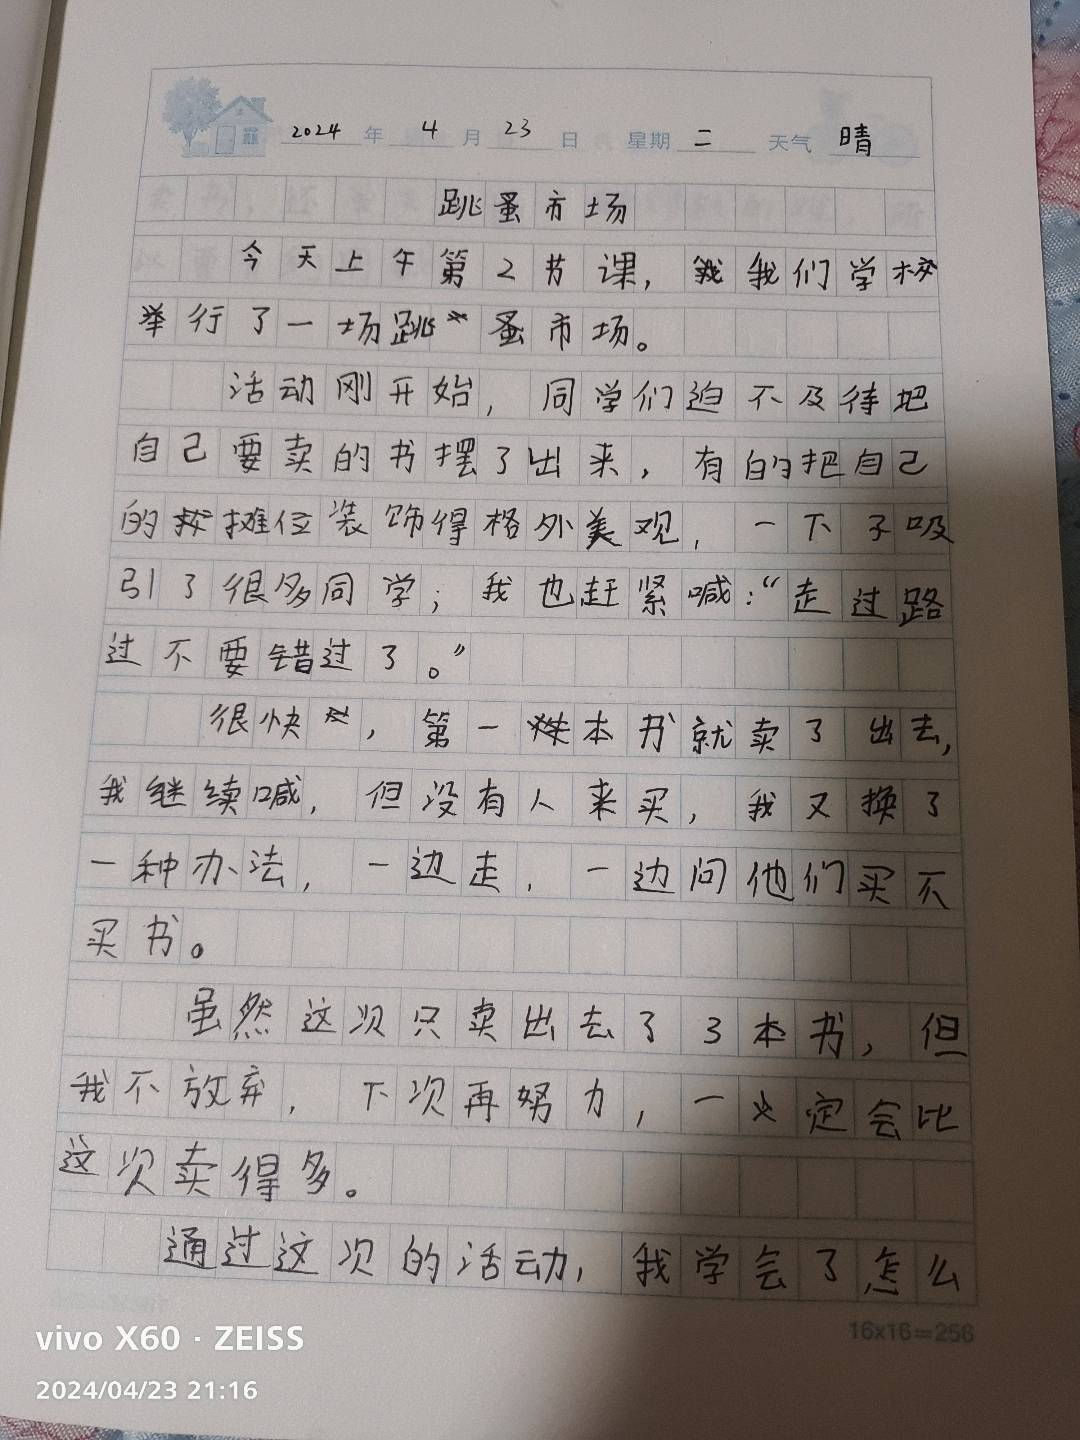 2024年4月23日 星期二 天气晴
跳蚤市场
今天上午第2节课，我们学校
举行了一场跳蚤市场。
活动刚开始，同学们迫不及待把
自己要卖的书摆了出来，有的把自己
的摊位装饰得格外美观，一下子吸
引了很多同学；我也赶紧喊：“走过路
过不要错过了。”
很快，第一本书就卖了出去，
我继续喊，但没有人来买，我又换了
一种办法，一边走，一边问他们买不
买书。
虽然这次只卖出去了3本书，但
我不放弃，下次再努力，一定会比
这次卖得多。
通过这次的活动，我学会了怎么
16x16=256
vivo X60 · ZEISS
2024/04/23 21:16